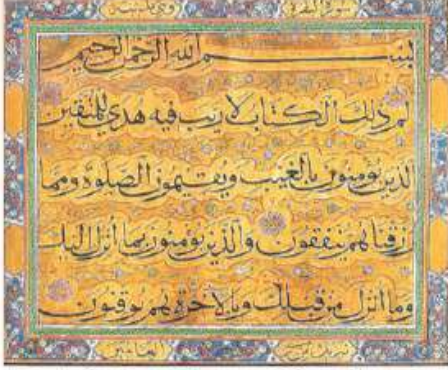 بسم الله الرحمن الرحيم
الم ذلك الكتاب لا ريب فيه هدى للمتقين
الذين يؤمنون بالغيب ويقيمون الصلوة ومما
رزقناهم ينفقون والذين يؤمنون بما أنزل اليك
وما انزل من قبلك وبالاخرة هم يوقنون